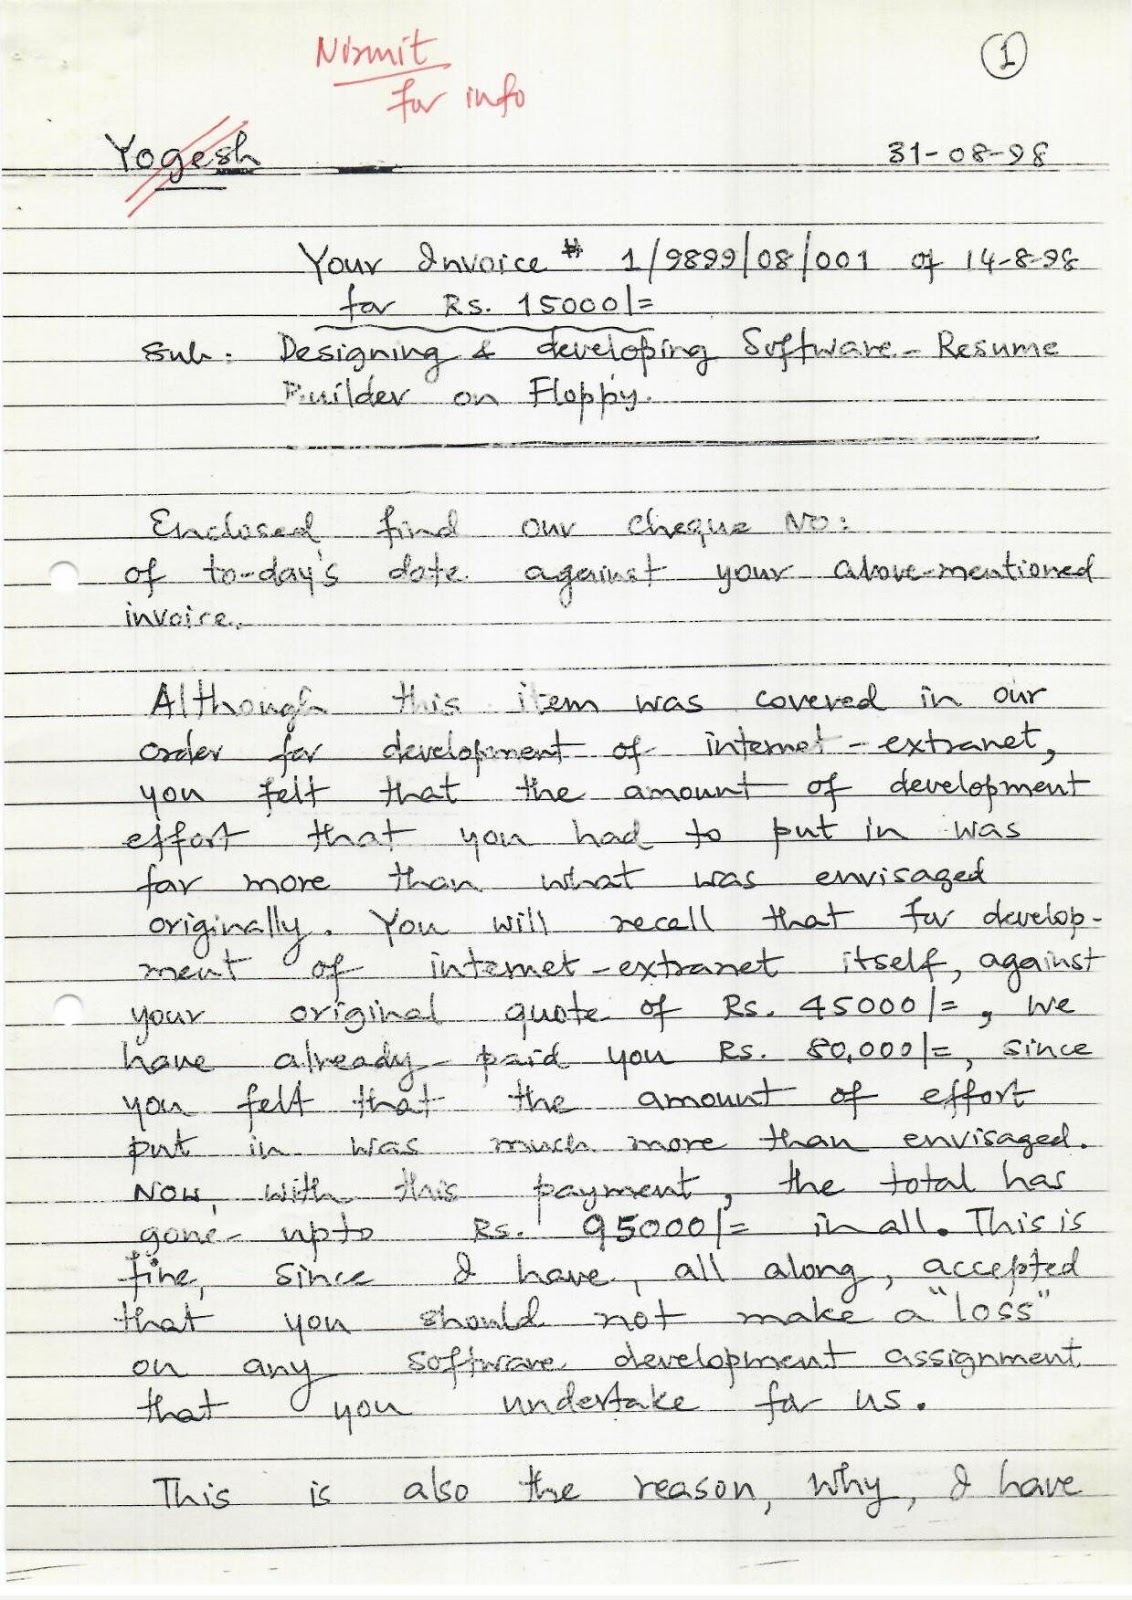 Nirmit
for info
1
Yogesh
31-08-98
Your Invoice # 1/9899/08/001 of 14-8-98
for Rs. 15000/=
Sub: Designing & developing Software - Resume
Builder on Floppy.
Enclosed find our cheque No:
of to-day's date against your above-mentioned
invoice.
Although this item was covered in our
order for development of internet-extranet,
you felt that the amount of development
effort that you had to put in was
far more than what was envisaged
originally. You will recall that for develop-
ment of internet-extranet itself, against
your original quote of Rs. 45000/=, we
have already paid you Rs. 80,000/=, since
you felt that the amount of effort
put in was much more than envisaged.
Now, with this payment, the total has
gone upto Rs. 95000/= in all. This is
fine, since I have, all along, accepted
that you should not make a "loss"
on any software development assignment
that you undertake for us.
This is also the reason, why, I have